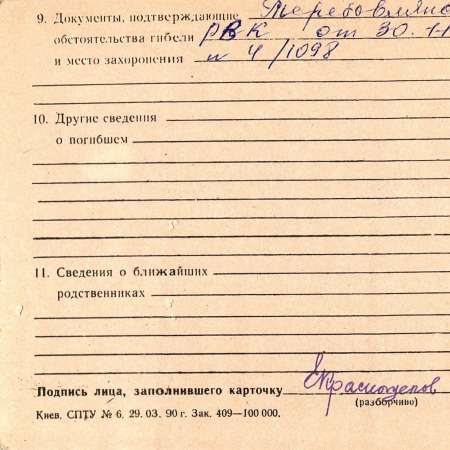 9. Документы, подтверждающие Теребовлянс
обстоятельства гибели РВК от 30.11
и место захоронения н 4/1098
10. Другие сведения
о погибшем
11. Сведения о ближайших
родственниках
Подпись лица, заполнившего карточку
(разборчиво)
Киев. СПТУ № 6. 29. 03. 90 г. Зак. 409—100 000.